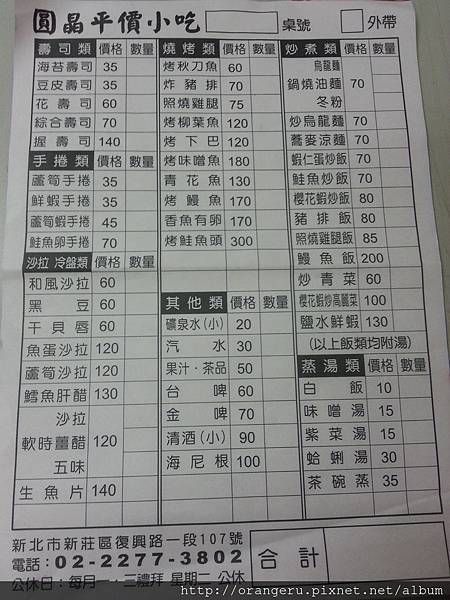 圓晶平價小吃 桌號 外帶
壽司類 價格 數量
海苔壽司 35
豆皮壽司 35
花壽司 60
綜合壽司 70
握壽司 140
手捲類 價格 數量
蘆筍手捲 35
鮮蝦手捲 35
蘆筍蝦手捲 45
鮭魚卵手捲 70
沙拉 冷盤類 價格 數量
和風沙拉 60
黑豆 60
干貝唇 60
魚蛋沙拉 120
蘆筍沙拉 120
鱈魚肝醋 130
沙拉
軟時薑醋 120
五味
生魚片 140
燒烤類 價格 數量
烤秋刀魚 60
炸豬排 70
照燒雞腿 75
烤柳葉魚 120
烤下巴 120
烤味噌魚 180
青花魚 130
烤鰻魚 170
香魚有卵 170
烤鮭魚頭 300
其他類 價格 數量
礦泉水(小) 20
汽水 30
果汁·茶品 50
台啤 60
金啤 70
清酒(小) 90
海尼根 100
炒煮類 價格 數量
烏龍麵
鍋燒油麵 70
冬粉
炒烏龍麵 70
蕎麥涼麵 70
蝦仁蛋炒飯 70
鮭魚炒飯 70
櫻花蝦炒飯 80
豬排飯 80
照燒雞腿飯 85
鰻魚飯 200
炒青菜 60
櫻花蝦炒高麗菜 100
鹽水鮮蝦 130
(以上飯類均附湯)
蒸湯類 價格 數量
白飯 10
味噌湯 15
紫菜湯 15
蛤蜊湯 30
茶碗蒸 35
新北市新莊區復興路一段107號
電話:02-2277-3802
公休日:每月一·三禮拜 星期二 公休
合計
http://orangeru.pixnet.net/album